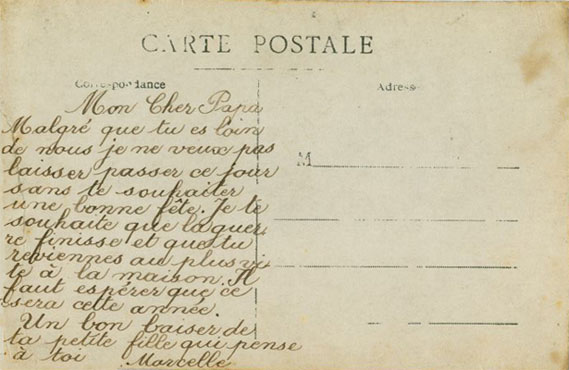 CARTE POSTALE
Correspondance
Adresse
Mon Cher Papa
Malgré que tu es loin
de nous je ne veux pas
laisser passer ce jour
sans te souhaiter
une bonne fête. Je te
souhaite que la guer
re finisse et que tu
reviennes au plus vi
te à la maison. Il
faut espérer que ce
sera cette année.
Un bon baiser de
ta petite fille qui pense
à toi Marcelle
M